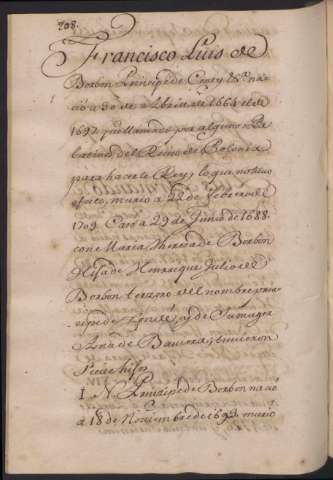 208.
Francisco Luis de
Borbon Principe de Conty &c. na
ció a 30 de Abril de 1664 el de
1697 fue llamado por algunos Pa
latinos del Reino de Polonia
para hacerle Rey, lo que no tuvo
efecto, murio a 22 de febrero de
1709. Casó a 29 de Junio de 1688.
con Maria Theresa de Borbon
Hija de Henrrique Julio de
Borbon tercero del nombre prin
cipe de y de su muger
Ana de Baviera, tuvieron
siete hijos
I N. Principe de Borbon nació
a 18 de Noviembre de 1693 murió